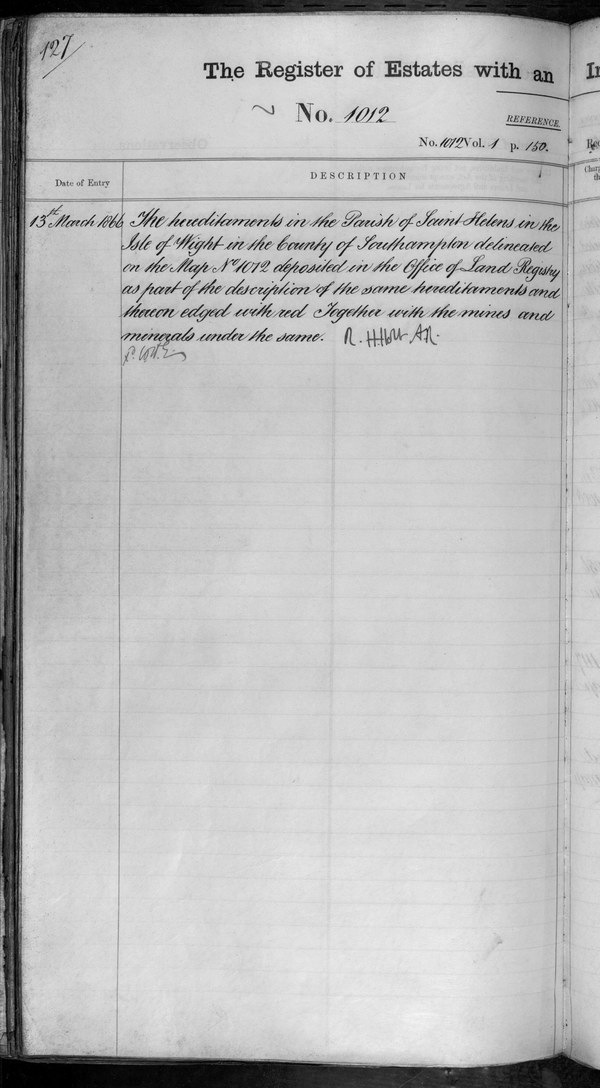 127
The Register of Estates with an
No. 1012
REFERENCE.
No. 1012 Vol. 1 p. 150.
Date of Entry
DESCRIPTION
13th March 1866
The hereditaments in the Parish of Saint Helens in the
Isle of Wight in the County of Southampton delineated
on the Map No. 1012 deposited in the Office of Land Registry
as part of the description of the same hereditaments and
thereon edged with red Together with the mines and
minerals under the same.